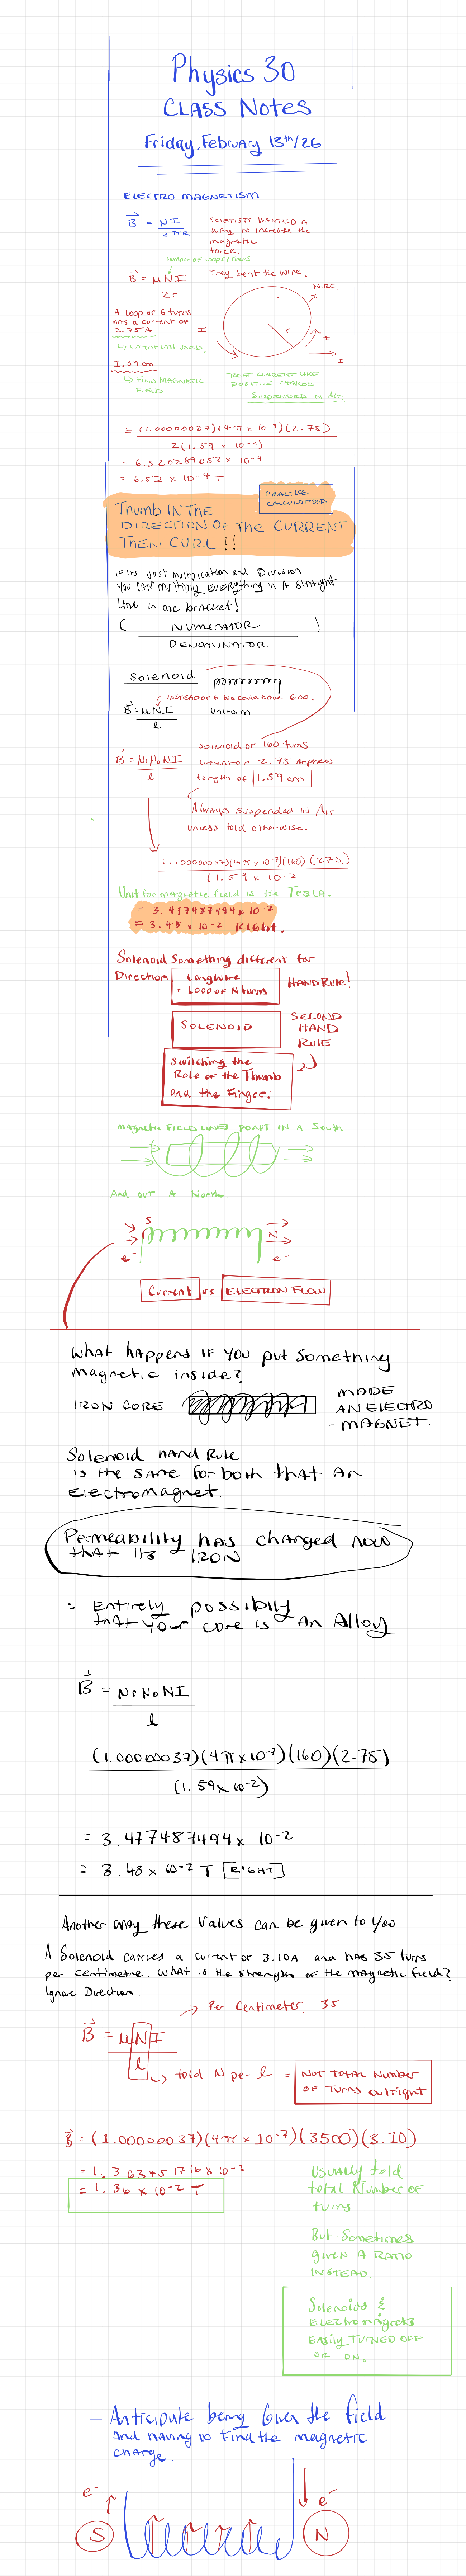 Physics 30
CLASS NOTES
Friday, February 13th/26
ELECTRO MAGNETISM
B = NI / 2πr
SCIETISTS WANTED A
WAY TO INCREASE THE
magnetic
force.
Number of Loops/Turns
B = μNI / 2r
They bent the wire.
WIRE.
A loop of 6 turns
has a current of
2.75A
I
r
I
I
↳ Current last used.
1.59cm
↳ FIND MAGNETIC
FIELD.
TREAT CURRENT LIKE
POSITIVE CHARGE
SUSPENDED IN Air
= (1.00000037)(4π×10-7)(2.75)
2(1.59 × 10-2)
= 6.520289052 × 10-4
= 6.52 × 10-4 T
PRACTICE
CALCULATIONS
Thumb IN THE
DIRECTION OF THE CURRENT
THEN CURL !!
IF Its Just multiplication and Division
YOU CAN multiply EVERYthing in A straight
Line in one bracket!
( NUMERATOR )
DENOMINATOR
Solenoid
INSTEAD OF 6 WE COULD HAVE 600.
B = μNI / l
Uniform
Solenoid of 160 turns
Current of 2.75 Amperes
Length of 1.59cm
B = NrNoNI / l
Always suspended IN Air
unless told otherwise.
(1.00000037)(4π×10-7)(160)(275)
(1.59 × 10-2
Unit for magnetic field is the Tesla.
= 3.477487494 × 10-2
= 3.48 × 10-2 Right.
Solenoid Something different for
Direction
LongWire
+ LOOP OF N turns
HAND RULE!
SOLENOID
SECOND
HAND
RULE
Switching the
Role of the Thumb
and the Finger.
Magnetic FIELD LINES POINT IN A South
And out A North.
S
N
e-
e-
Current vs ELECTRON FLOW
What happens IF YOU put Something
Magnetic inside?
IRON CORE
MADE
AN ELECTRO
- MAGNET.
Solenoid Hand Rule
is the SAME for both that An
Electromagnet.
Permeability has changed now
that its IRON
= Entirely possibily
that your core is An Alloy
B = NrNoNI
l
(1.00000037)(4π×10-7)(160)(2.75)
(1.59×10-2)
= 3.477487494 × 10-2
= 3.48 × 10-2 T [RIGHT]
Another way these Values can be given to you
A Solenoid carries a current of 3.10A and has 35 turns
per centimetre. What is the strength of the magnetic field?
Ignore Direction.
→ Per Centimeter 35
B = μNI
l
↳ told N per l = NOT TOTAL Number
OF Turns outright
B = (1.00000037)(4π×10-7)(3500)(3.10)
= 1.363451716×10-2
= 1.36 × 10-2 T
Usually told
total Number of
turns
But Sometimes
given A RATIO
INSTEAD.
Solenoids &
ELECTROmagnets
EASILY TURNED OFF
OR ON.
- Anticipate being Given the field
And having to Find the magnetic
charge.
e-
e-
S
N